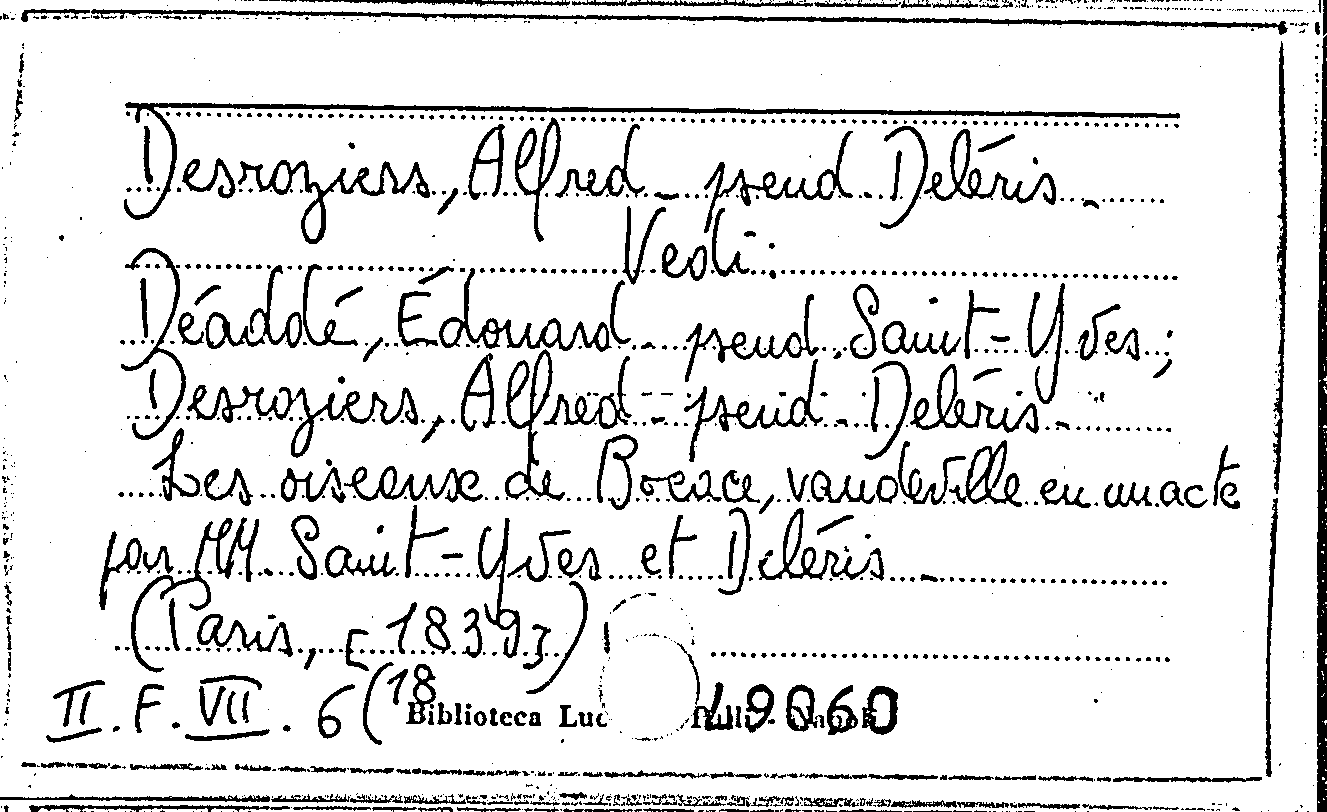 Desroziers, Alfred - pseud. Deléris -
Vedi:
Déaddé, Édouard - pseud. Saint-Yves;
Desroziers, Alfred - pseud. Deléris -
Les oiseaux de Bocace, vaudeville en un acte
par MM. Saint-Yves et Deléris -
(Paris, [1839])
II. F. VII. 6 (18
Biblioteca 49060